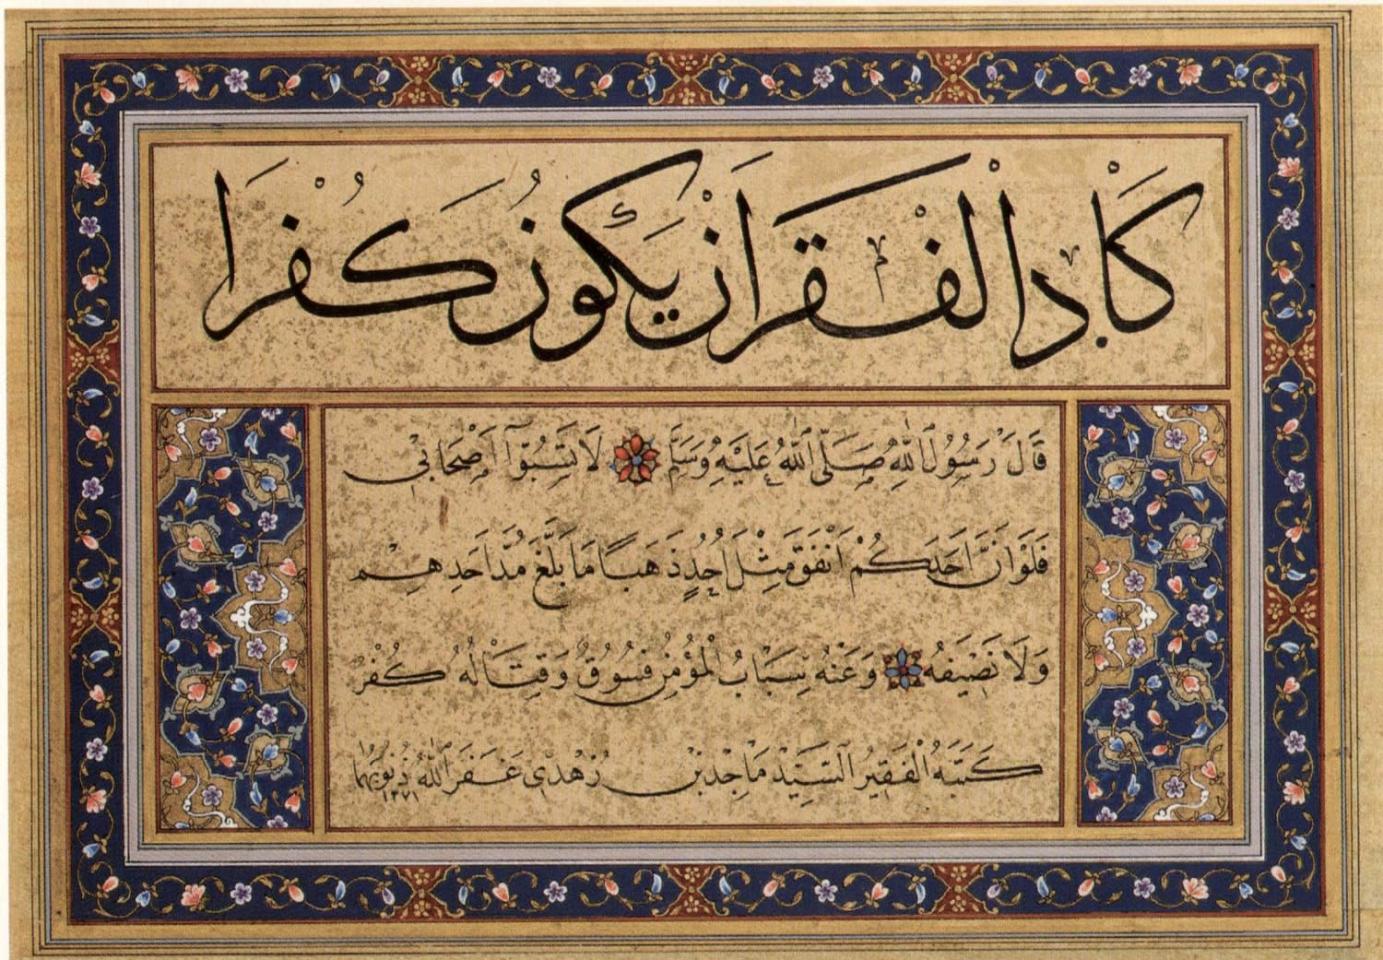 كَادَ الْفَقْرُ اَنْ يَكُونُ كُفْرًا
قَالَ رَسُولُ اللّٰهِ صَلَّى اللّٰهُ عَلَيْهِ وَسَلَّمَ لَا تَسُبُّوٓا اَصْحَابِي
فَلَوْ اَنَّ اَحَدَكُمْ اَنْفَقَ مِثْلَ اُحُدٍ ذَهَبًا مَا بَلَغَ مُدَّ اَحَدِهِمْ
وَلَا نَصِيفَهُ وَعَنْهُ سِبَابُ الْمُؤْمِنِ فُسُوقٌ وَقِتَالُهُ كُفْرٌ
كَتَبَهُ الْفَقِيرُ السَّيِّد مَاجِد بْن زُهْدِي غَفَرَ اللّٰهُ ذُنُوبَهُمَا ١٣٧١